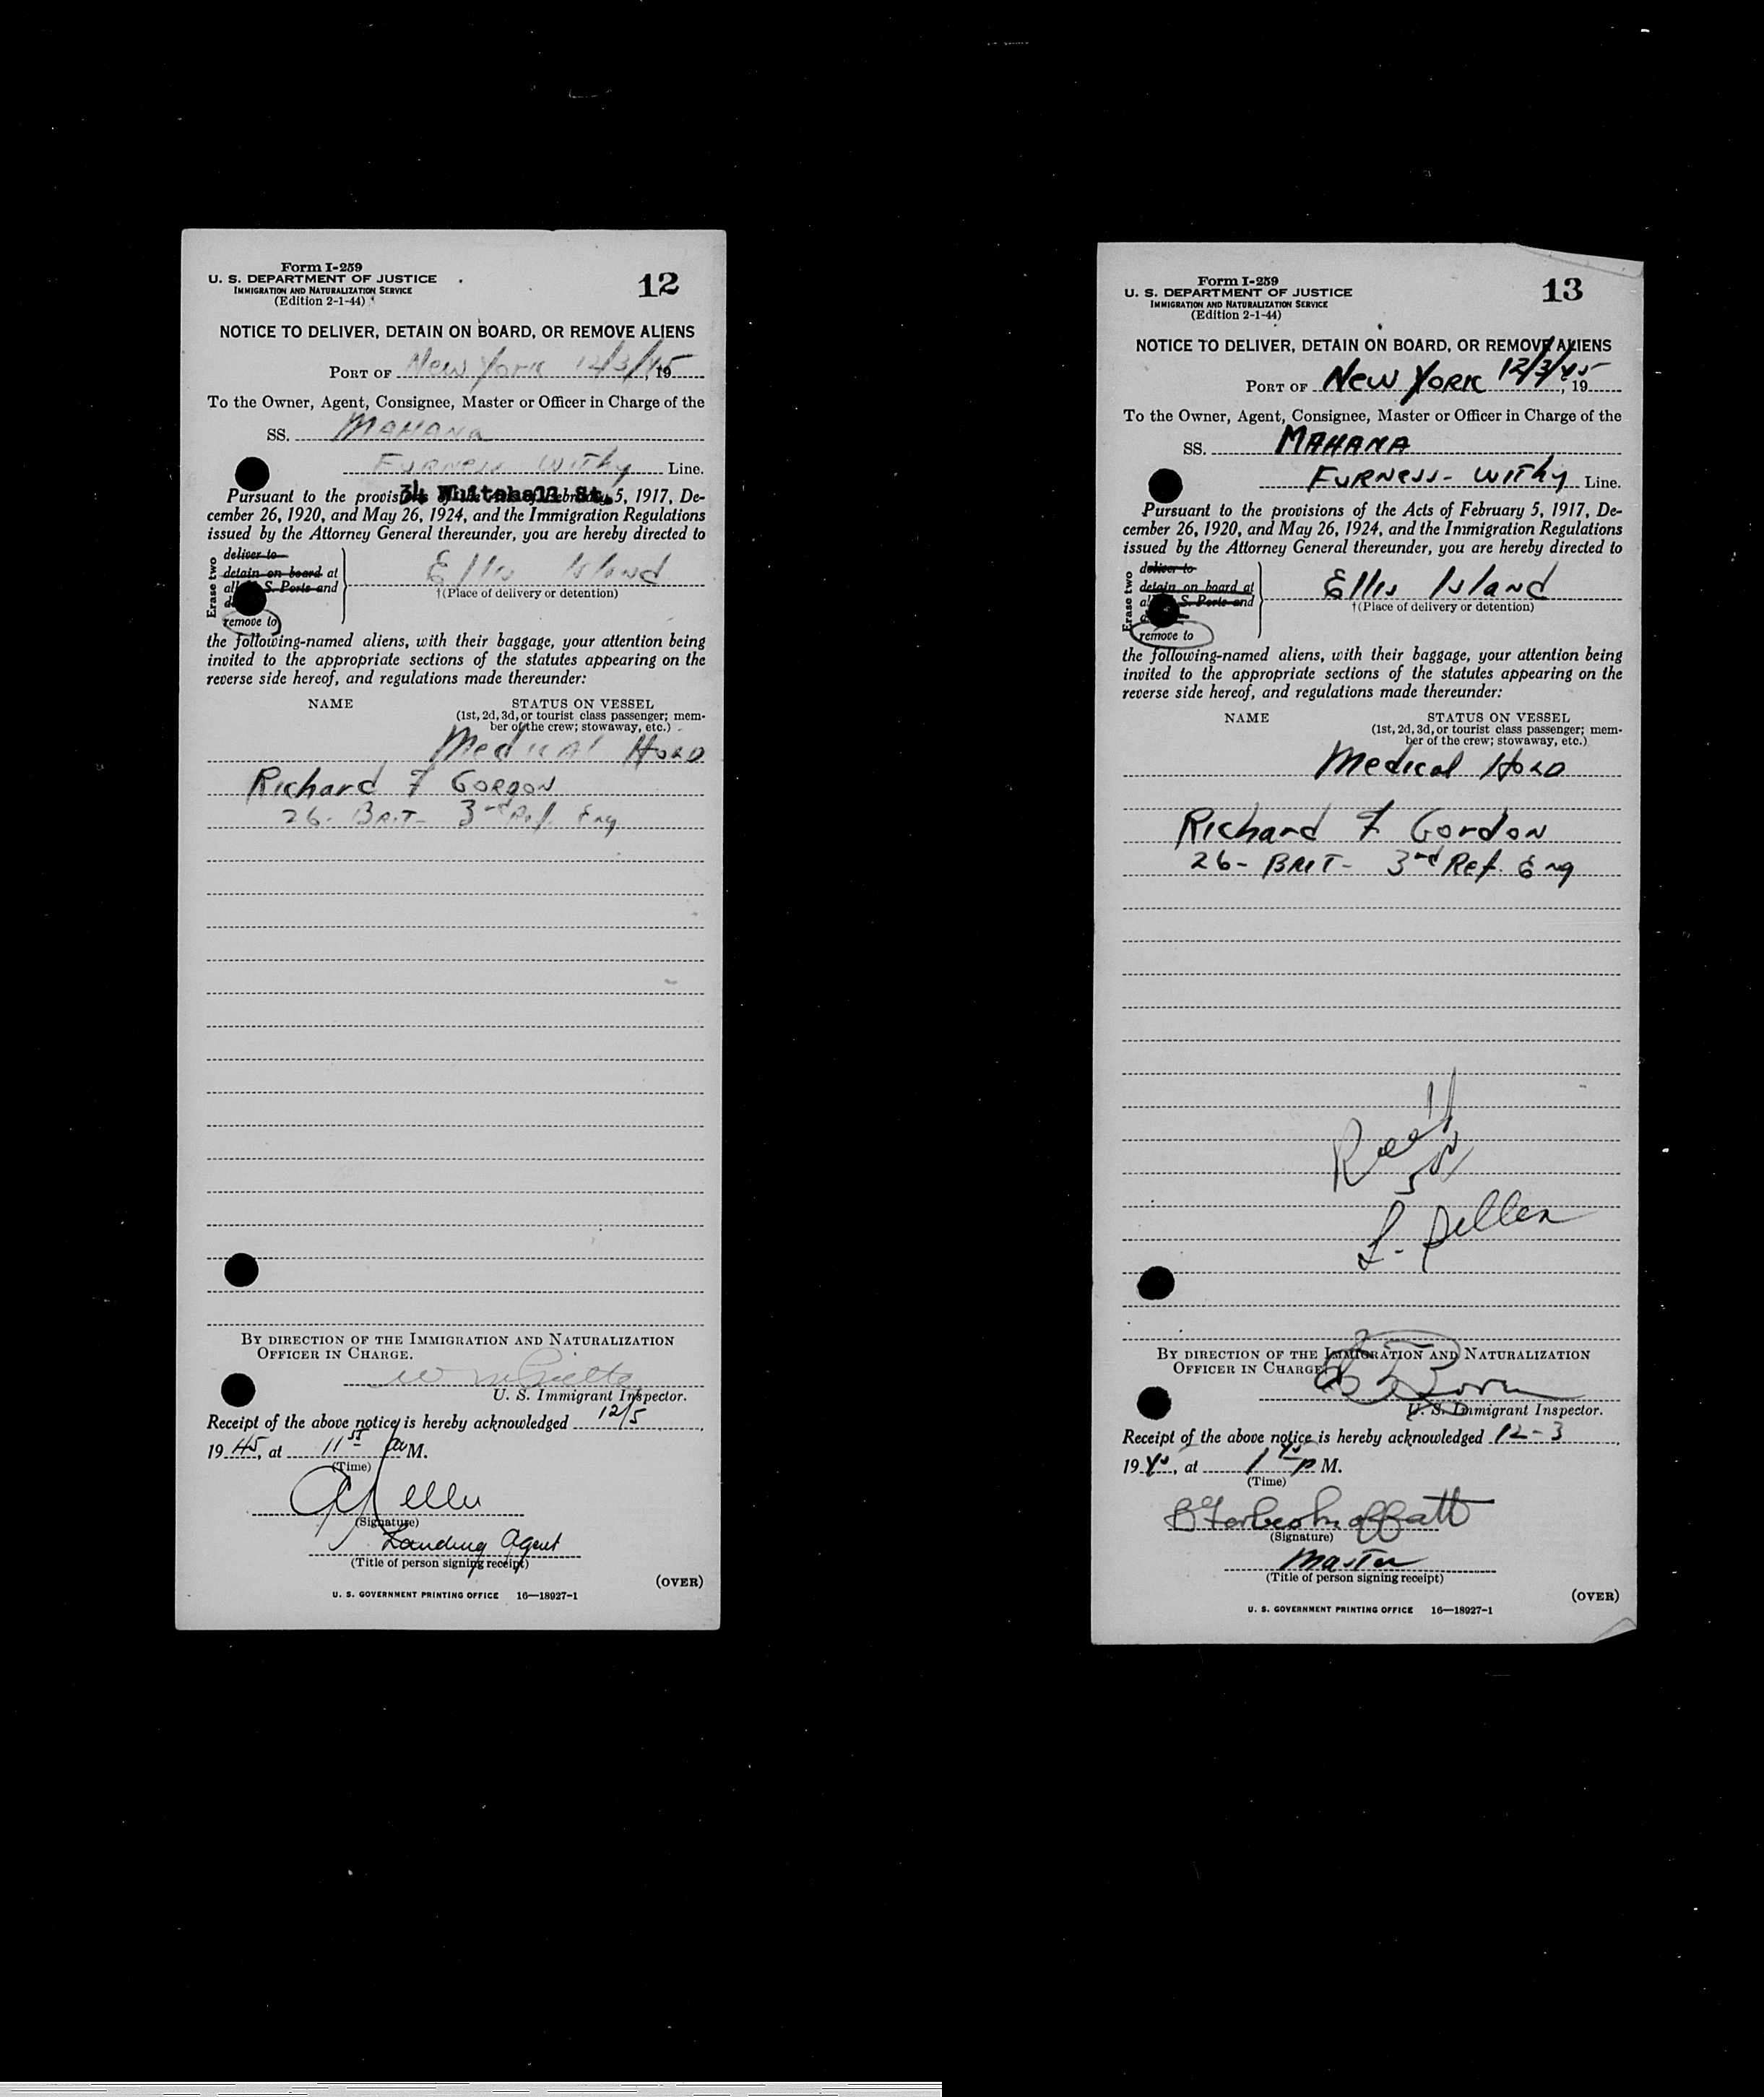 Form I-259
U. S. DEPARTMENT OF JUSTICE
IMMIGRATION AND NATURALIZATION SERVICE
(Edition 2-1-44)
12
NOTICE TO DELIVER, DETAIN ON BOARD, OR REMOVE ALIENS
PORT OF New York 12/3/45, 19
To the Owner, Agent, Consignee, Master or Officer in Charge of the
SS. MAHANA
FURNESS WITHY Line.
34 Whitehall St.
Pursuant to the provisions of the Acts of February 5, 1917, De-
cember 26, 1920, and May 26, 1924, and the Immigration Regulations
issued by the Attorney General thereunder, you are hereby directed to
Erase two
deliver to
detain on board at
all U. S. Ports and
remove to
Ellis Island
†(Place of delivery or detention)
the following-named aliens, with their baggage, your attention being
invited to the appropriate sections of the statutes appearing on the
reverse side hereof, and regulations made thereunder:
NAME
STATUS ON VESSEL
(1st, 2d, 3d, or tourist class passenger; mem-
ber of the crew; stowaway, etc.)
Medical HOLD
Richard F GORDON
26- BRIT- 3rd Ref. Eng
BY DIRECTION OF THE IMMIGRATION AND NATURALIZATION
OFFICER IN CHARGE.
U. S. Immigrant Inspector.
Receipt of the above notice is hereby acknowledged 12/5,
19 45, at 11 a M.
(Time)
(Signature)
Landing Agent
(Title of person signing receipt)
(OVER)
U. S. GOVERNMENT PRINTING OFFICE 16—18927-1
Form I-259
U. S. DEPARTMENT OF JUSTICE
IMMIGRATION AND NATURALIZATION SERVICE
(Edition 2-1-44)
13
NOTICE TO DELIVER, DETAIN ON BOARD, OR REMOVE ALIENS
PORT OF New YORK 12/3/45, 19
To the Owner, Agent, Consignee, Master or Officer in Charge of the
SS. MAHANA
FURNESS- WITHY Line.
Pursuant to the provisions of the Acts of February 5, 1917, De-
cember 26, 1920, and May 26, 1924, and the Immigration Regulations
issued by the Attorney General thereunder, you are hereby directed to
Erase two
deliver to
detain on board at
all U. S. Ports and
remove to
Ellis Island
†(Place of delivery or detention)
the following-named aliens, with their baggage, your attention being
invited to the appropriate sections of the statutes appearing on the
reverse side hereof, and regulations made thereunder:
NAME
STATUS ON VESSEL
(1st, 2d, 3d, or tourist class passenger; mem-
ber of the crew; stowaway, etc.)
Medical HOLD
Richard F Gordon
26- BRIT- 3rd Ref. Eng
BY DIRECTION OF THE IMMIGRATION AND NATURALIZATION
OFFICER IN CHARGE.
U. S. Immigrant Inspector.
Receipt of the above notice is hereby acknowledged 12-3,
19 45, at 1 45 P M.
(Time)
(Signature)
Master
(Title of person signing receipt)
(OVER)
U. S. GOVERNMENT PRINTING OFFICE 16—18927-1